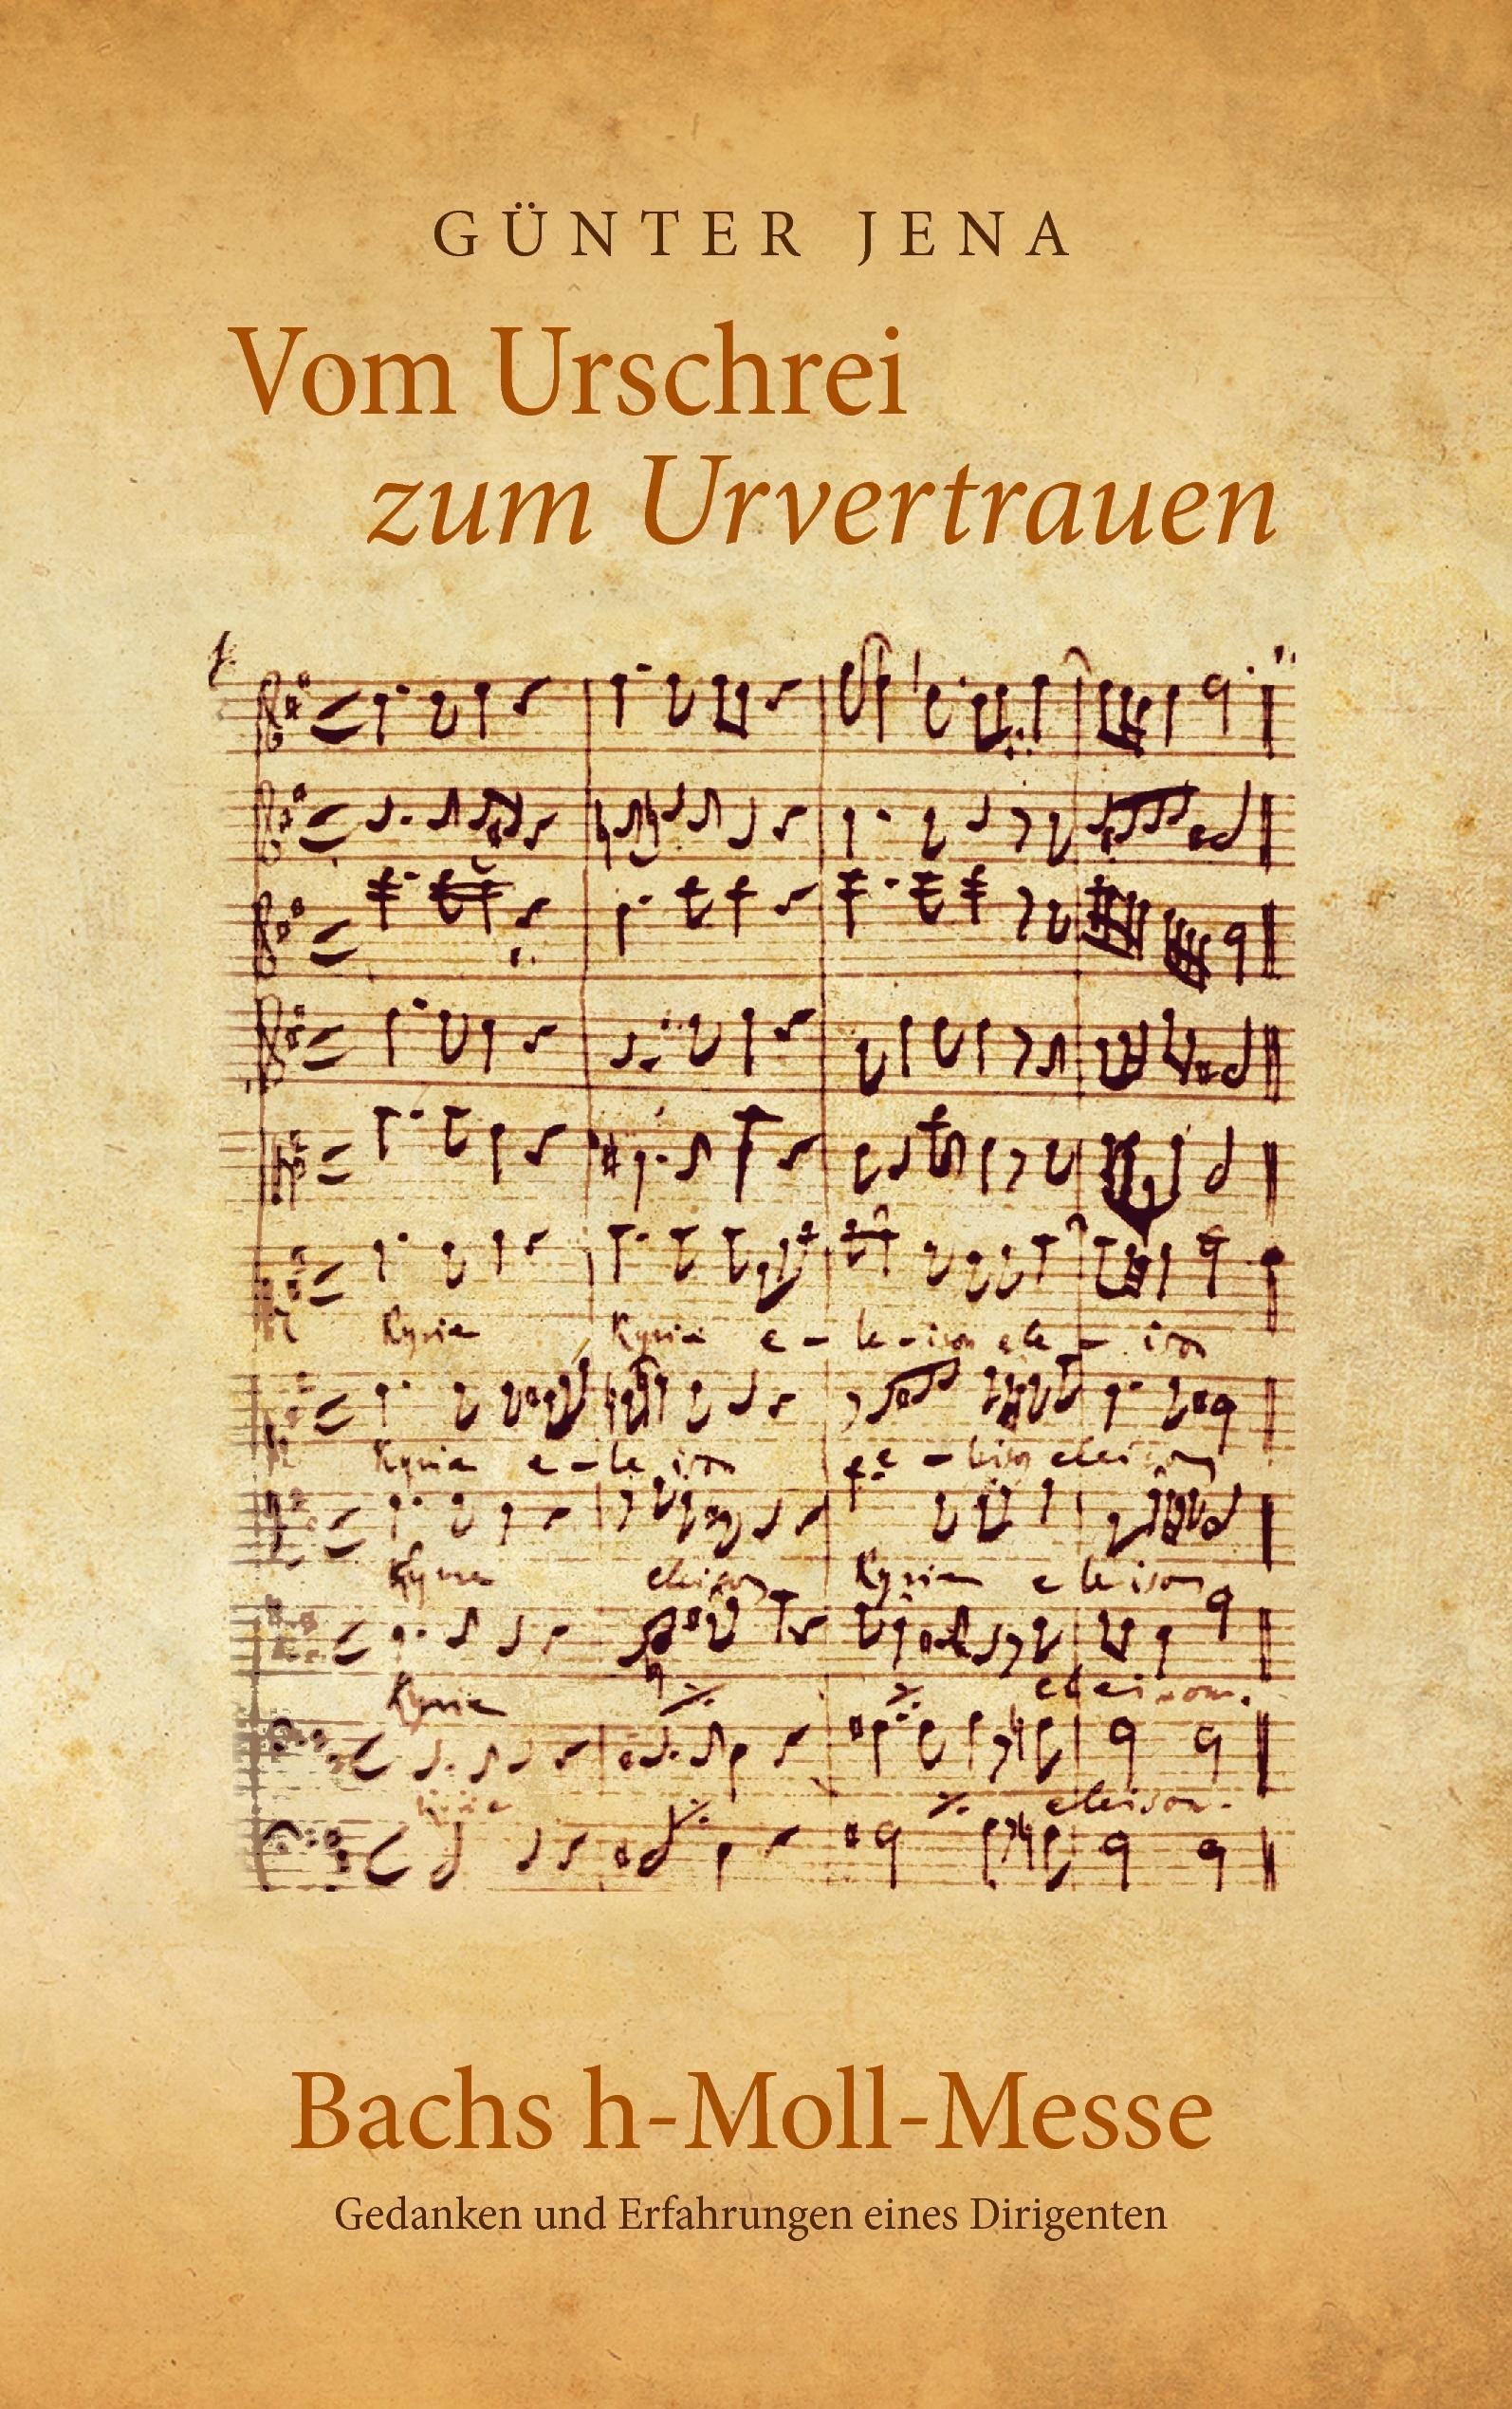 GÜNTER JENA
Vom Urschrei
zum Urvertrauen
Kyrie Kyrie e - le - ison ele - ison
Kyrie e - le ison e - leison eleison
Kyrie eleison Kyrie eleison
Kyrie eleison.
Kyrie eleison.
Bachs h-Moll-Messe
Gedanken und Erfahrungen eines Dirigenten